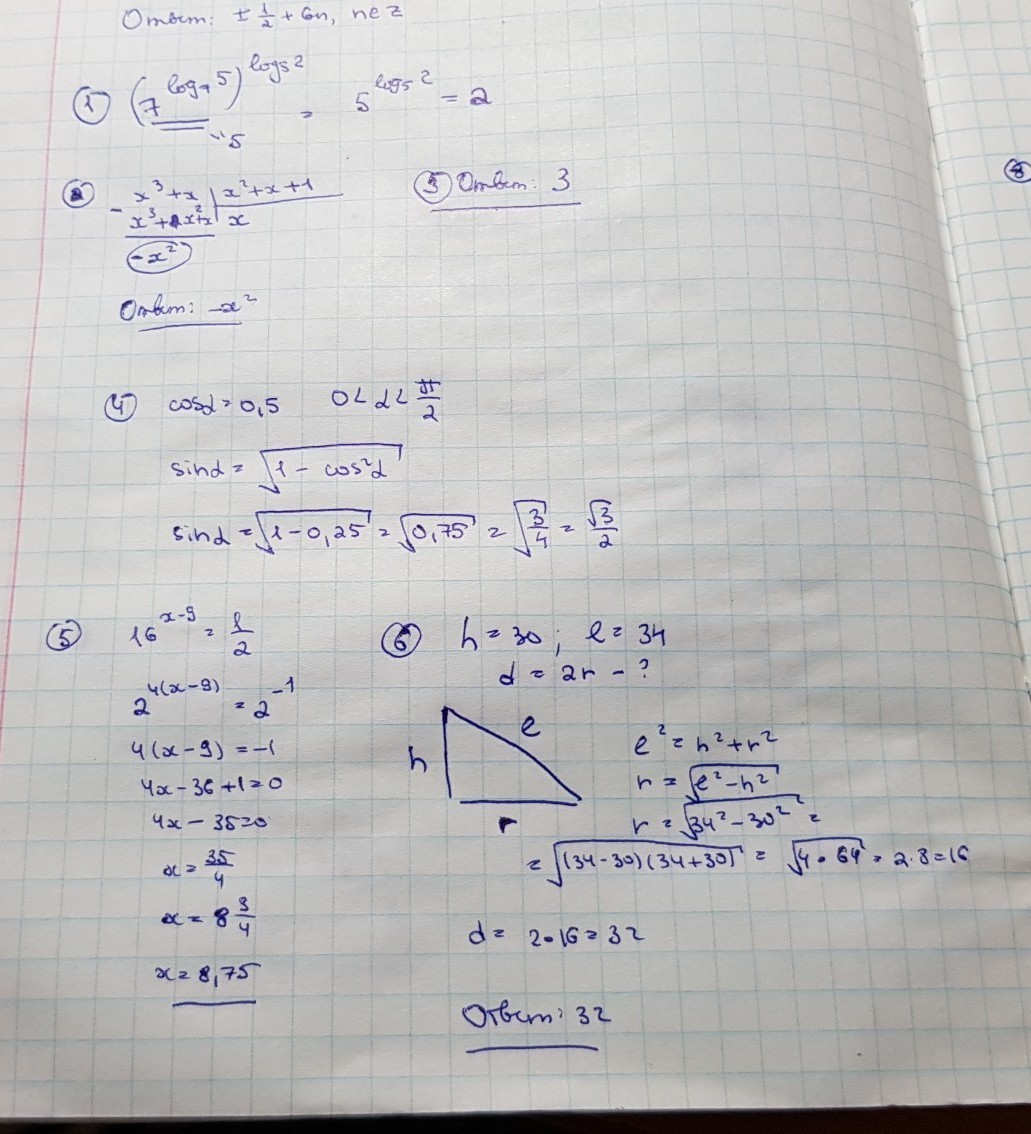 Ответ: ± 1/2 + 6n, n ∈ z
① (7^log₇5)^log₅2 = 5^log₅2 = 2
"5
② x³+x | x²+x+1
- x³+x²+x | x
-x²
Ответ: -x²
③ Ответ: 3
8
④ cosα = 0,5 0<α<π/2
sinα = √(1 - cos²α)
sinα = √(1-0,25) = √(0,75) = √(3/4) = √3/2
⑤ 16^(x-9) = 1/2
2^(4(x-9)) = 2^(-1)
4(x-9) = -1
4x-36+1=0
4x-35=0
x = 35/4
x = 8 3/4
x = 8,75
⑥ h = 30 ; l = 34
d = 2r - ?
h
l
r
l² = h² + r²
r = √(l²-h²)
r = √(34²-30²) =
= √((34-30)(34+30)) = √(4•64) = 2·8=16
d = 2•16=32
Ответ: 32